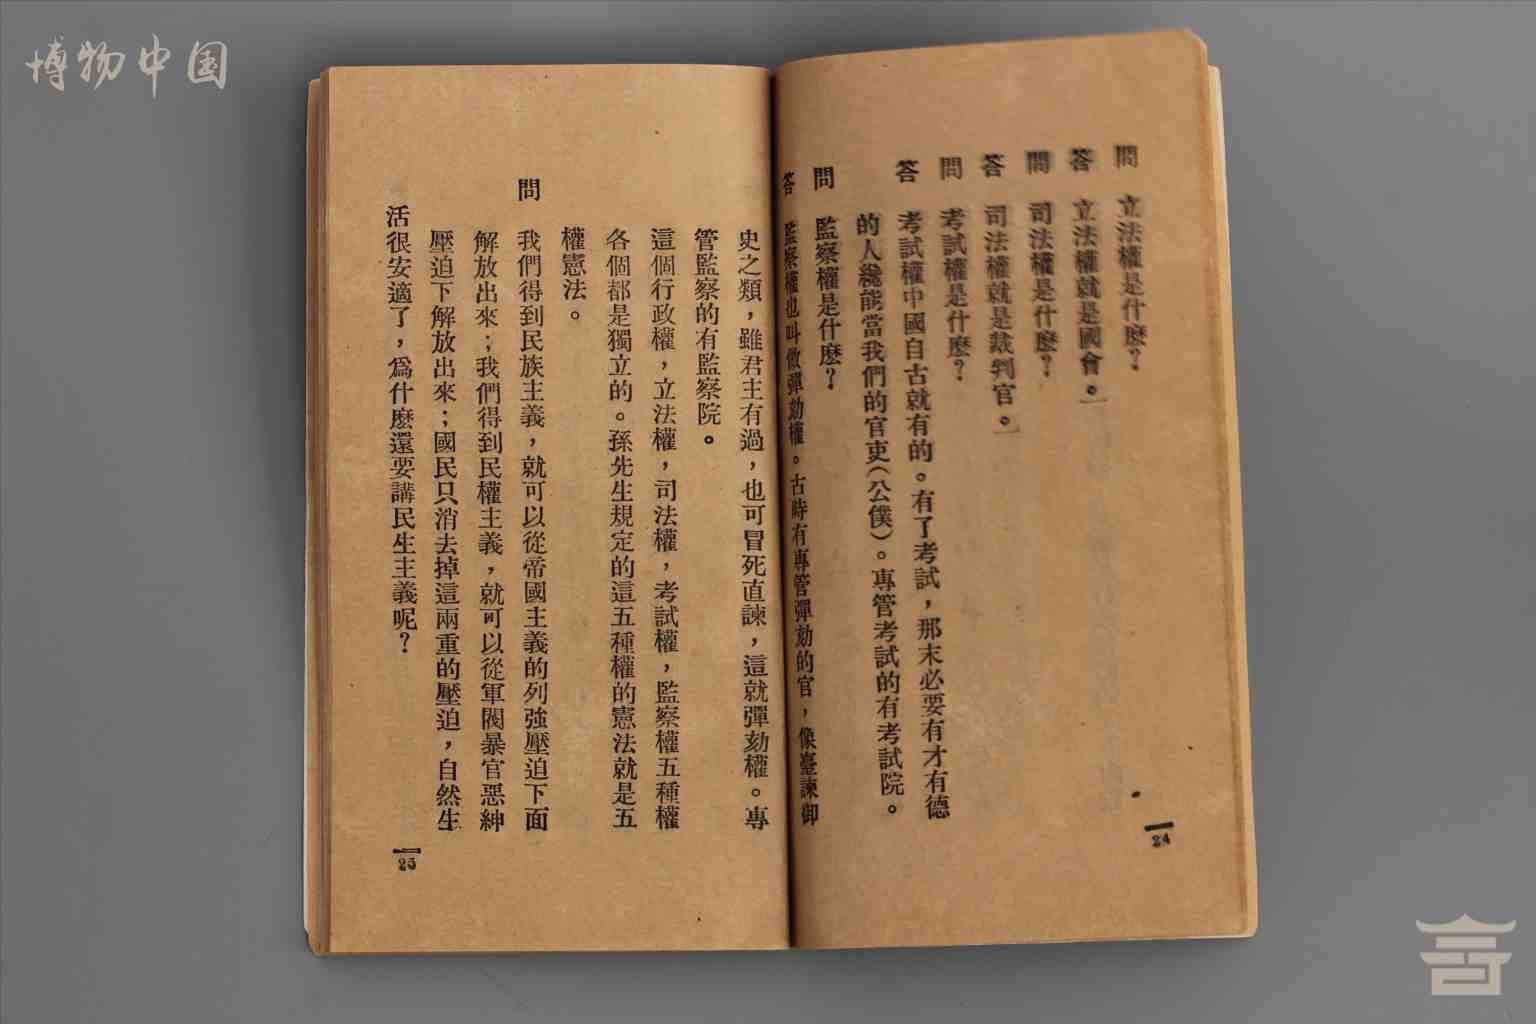 博物中国
問　立法權是什麽？
答　立法權就是國會。
問　司法權是什麽？
答　司法權就是裁判官。
問　考試權是什麽？
答　考試權中國自古就有的。有了考試，那末必要有才有德
的人纔能當我們的官吏（公僕）。專管考試的有考試院。
問　監察權是什麽？
答　監察權也叫做彈劾權。古時有專管彈劾的官，像臺諫御
24
史之類，雖君主有過，也可冒死直諫，這就彈劾權。專
管監察的有監察院。
這個行政權，立法權，司法權，考試權，監察權五種權
各個都是獨立的。孫先生規定的這五種權的憲法就是五
權憲法。
問　我們得到民族主義，就可以從帝國主義的列強壓迫下面
解放出來；我們得到民權主義，就可以從軍閥暴官惡紳
壓迫下解放出來；國民只消去掉這兩重的壓迫，自然生
活很安適了，爲什麽還要講民生主義呢？
25